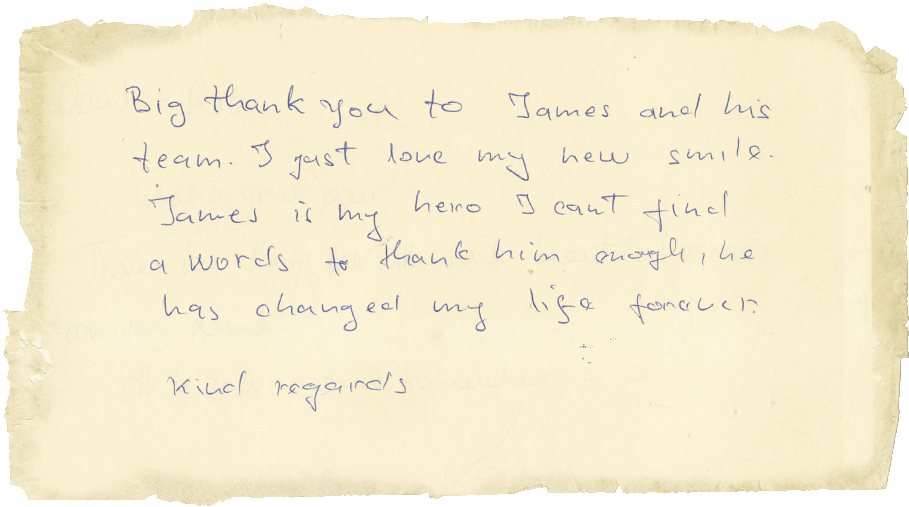 Big thank you to James and his
team. I just love my new smile.
James is my hero I cant find
a words to thank him enough, he
has changed my life forever.
Kind regards